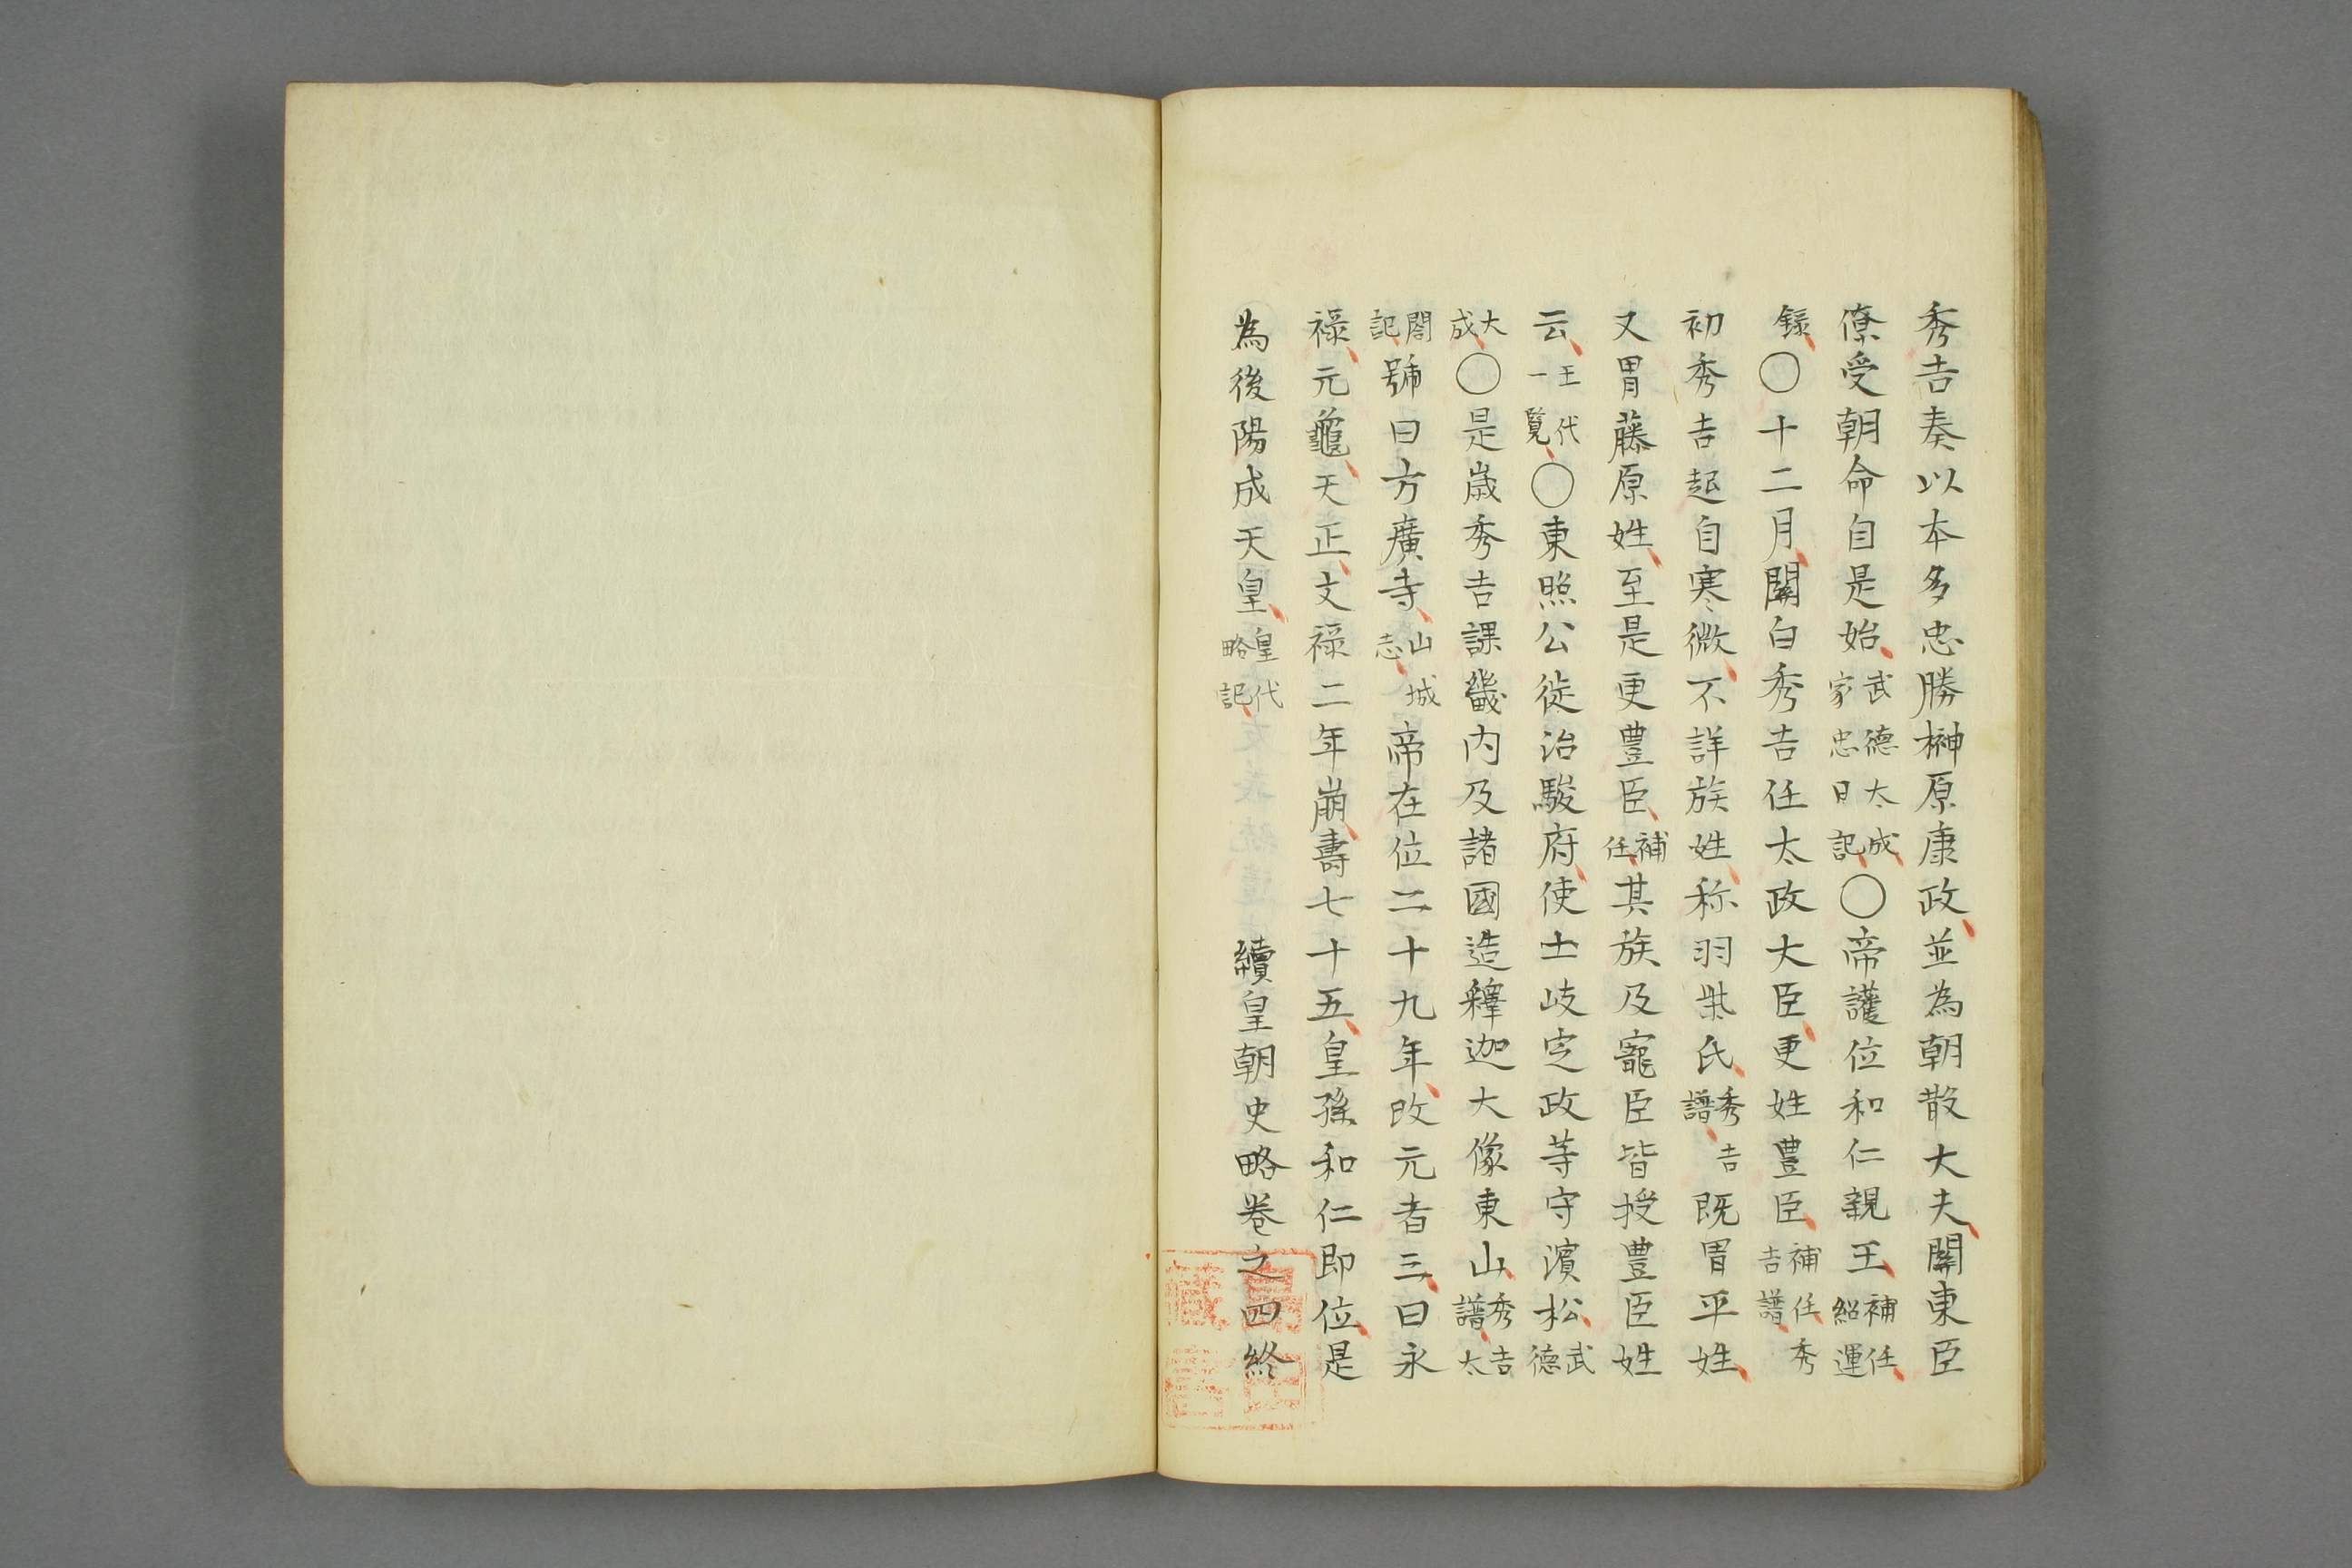 秀吉奏以本多忠勝榊原康政並為朝散大夫關東臣
僚受朝命自是始武德大成家忠日記〇帝讓位和仁親王補任紹運
錄〇十二月關白秀吉任太政大臣更姓豊臣補任秀吉譜
初秀吉起自寒微不詳族姓称羽柴氏秀吉譜既冒平姓
又冒藤原姓至是更豊臣補任其族及寵臣皆授豊臣姓
云王代一覧〇東照公徙治駿府使士岐定政等守濱松武德
大成〇是歳秀吉課畿内及諸國造釋迦大像東山秀吉譜太
閤記號曰方廣寺山城志帝在位二十九年改元者三曰永
禄元龜天正文禄二年崩壽七十五皇孫和仁即位是
為後陽成天皇皇代略記　續皇朝史略巻之四終